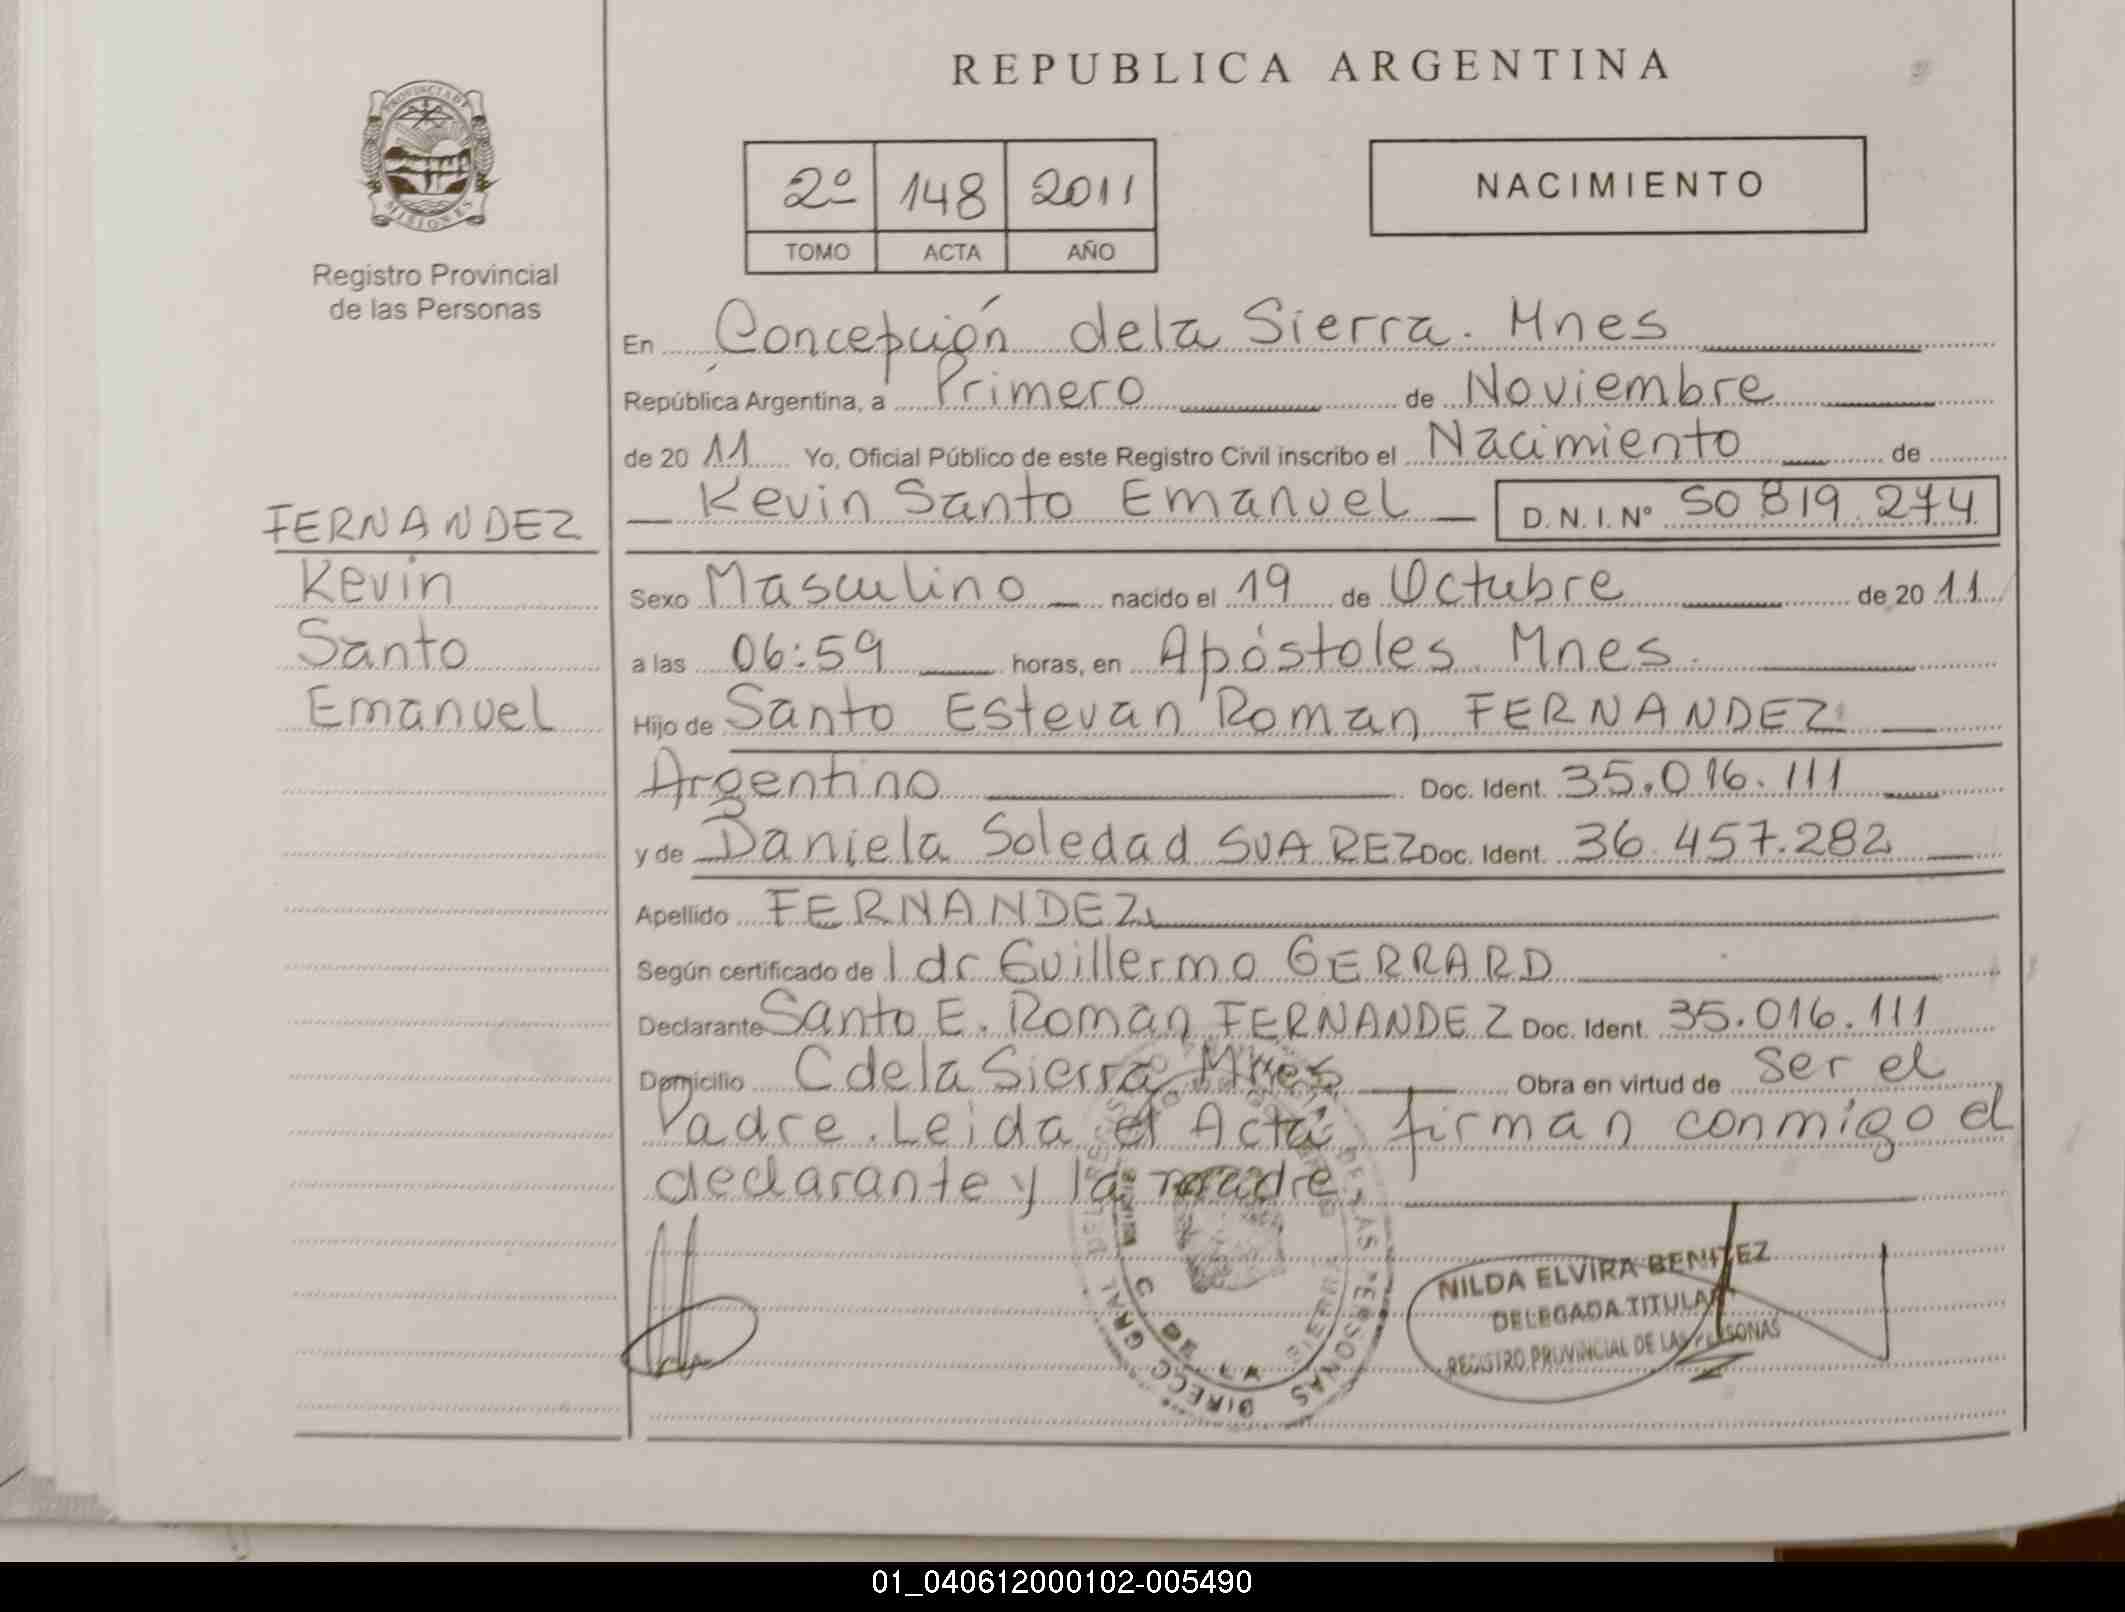 REPUBLICA ARGENTINA
PROVINCIA DE
MISIONES
Registro Provincial
de las Personas
2º 148 2011
TOMO ACTA AÑO
NACIMIENTO
En Concepción dela Sierra. Mnes
República Argentina, a Primero de Noviembre
de 2011 Yo, Oficial Público de este Registro Civil inscribo el Nacimiento de
Kevin Santo Emanuel D.N.I.Nº 50 819.274
FERNANDEZ
Kevin
Santo
Emanuel
Sexo Masculino nacido el 19 de Octubre de 2011
a las 06:59 horas, en Apóstoles Mnes.
Hijo de Santo Estevan Roman FERNANDEZ
Argentino Doc. Ident. 35.016.111
y de Daniela Soledad SUAREZ Doc. Ident. 36.457.282
Apellido FERNANDEZ
Según certificado de l dr Guillermo GERRARD
Declarante Santo E. Roman FERNANDEZ Doc. Ident. 35.016.111
Domicilio C dela Sierra Mnes Obra en virtud de ser el
Padre. Leida el Acta firman conmigo el
declarante y la madre
DIRECC. GRAL. DEL REGISTRO DE LAS PERSONAS
NILDA ELVIRA BENITEZ
DELEGADA TITULAR
REGISTRO PROVINCIAL DE LAS PERSONAS
01_040612000102-005490